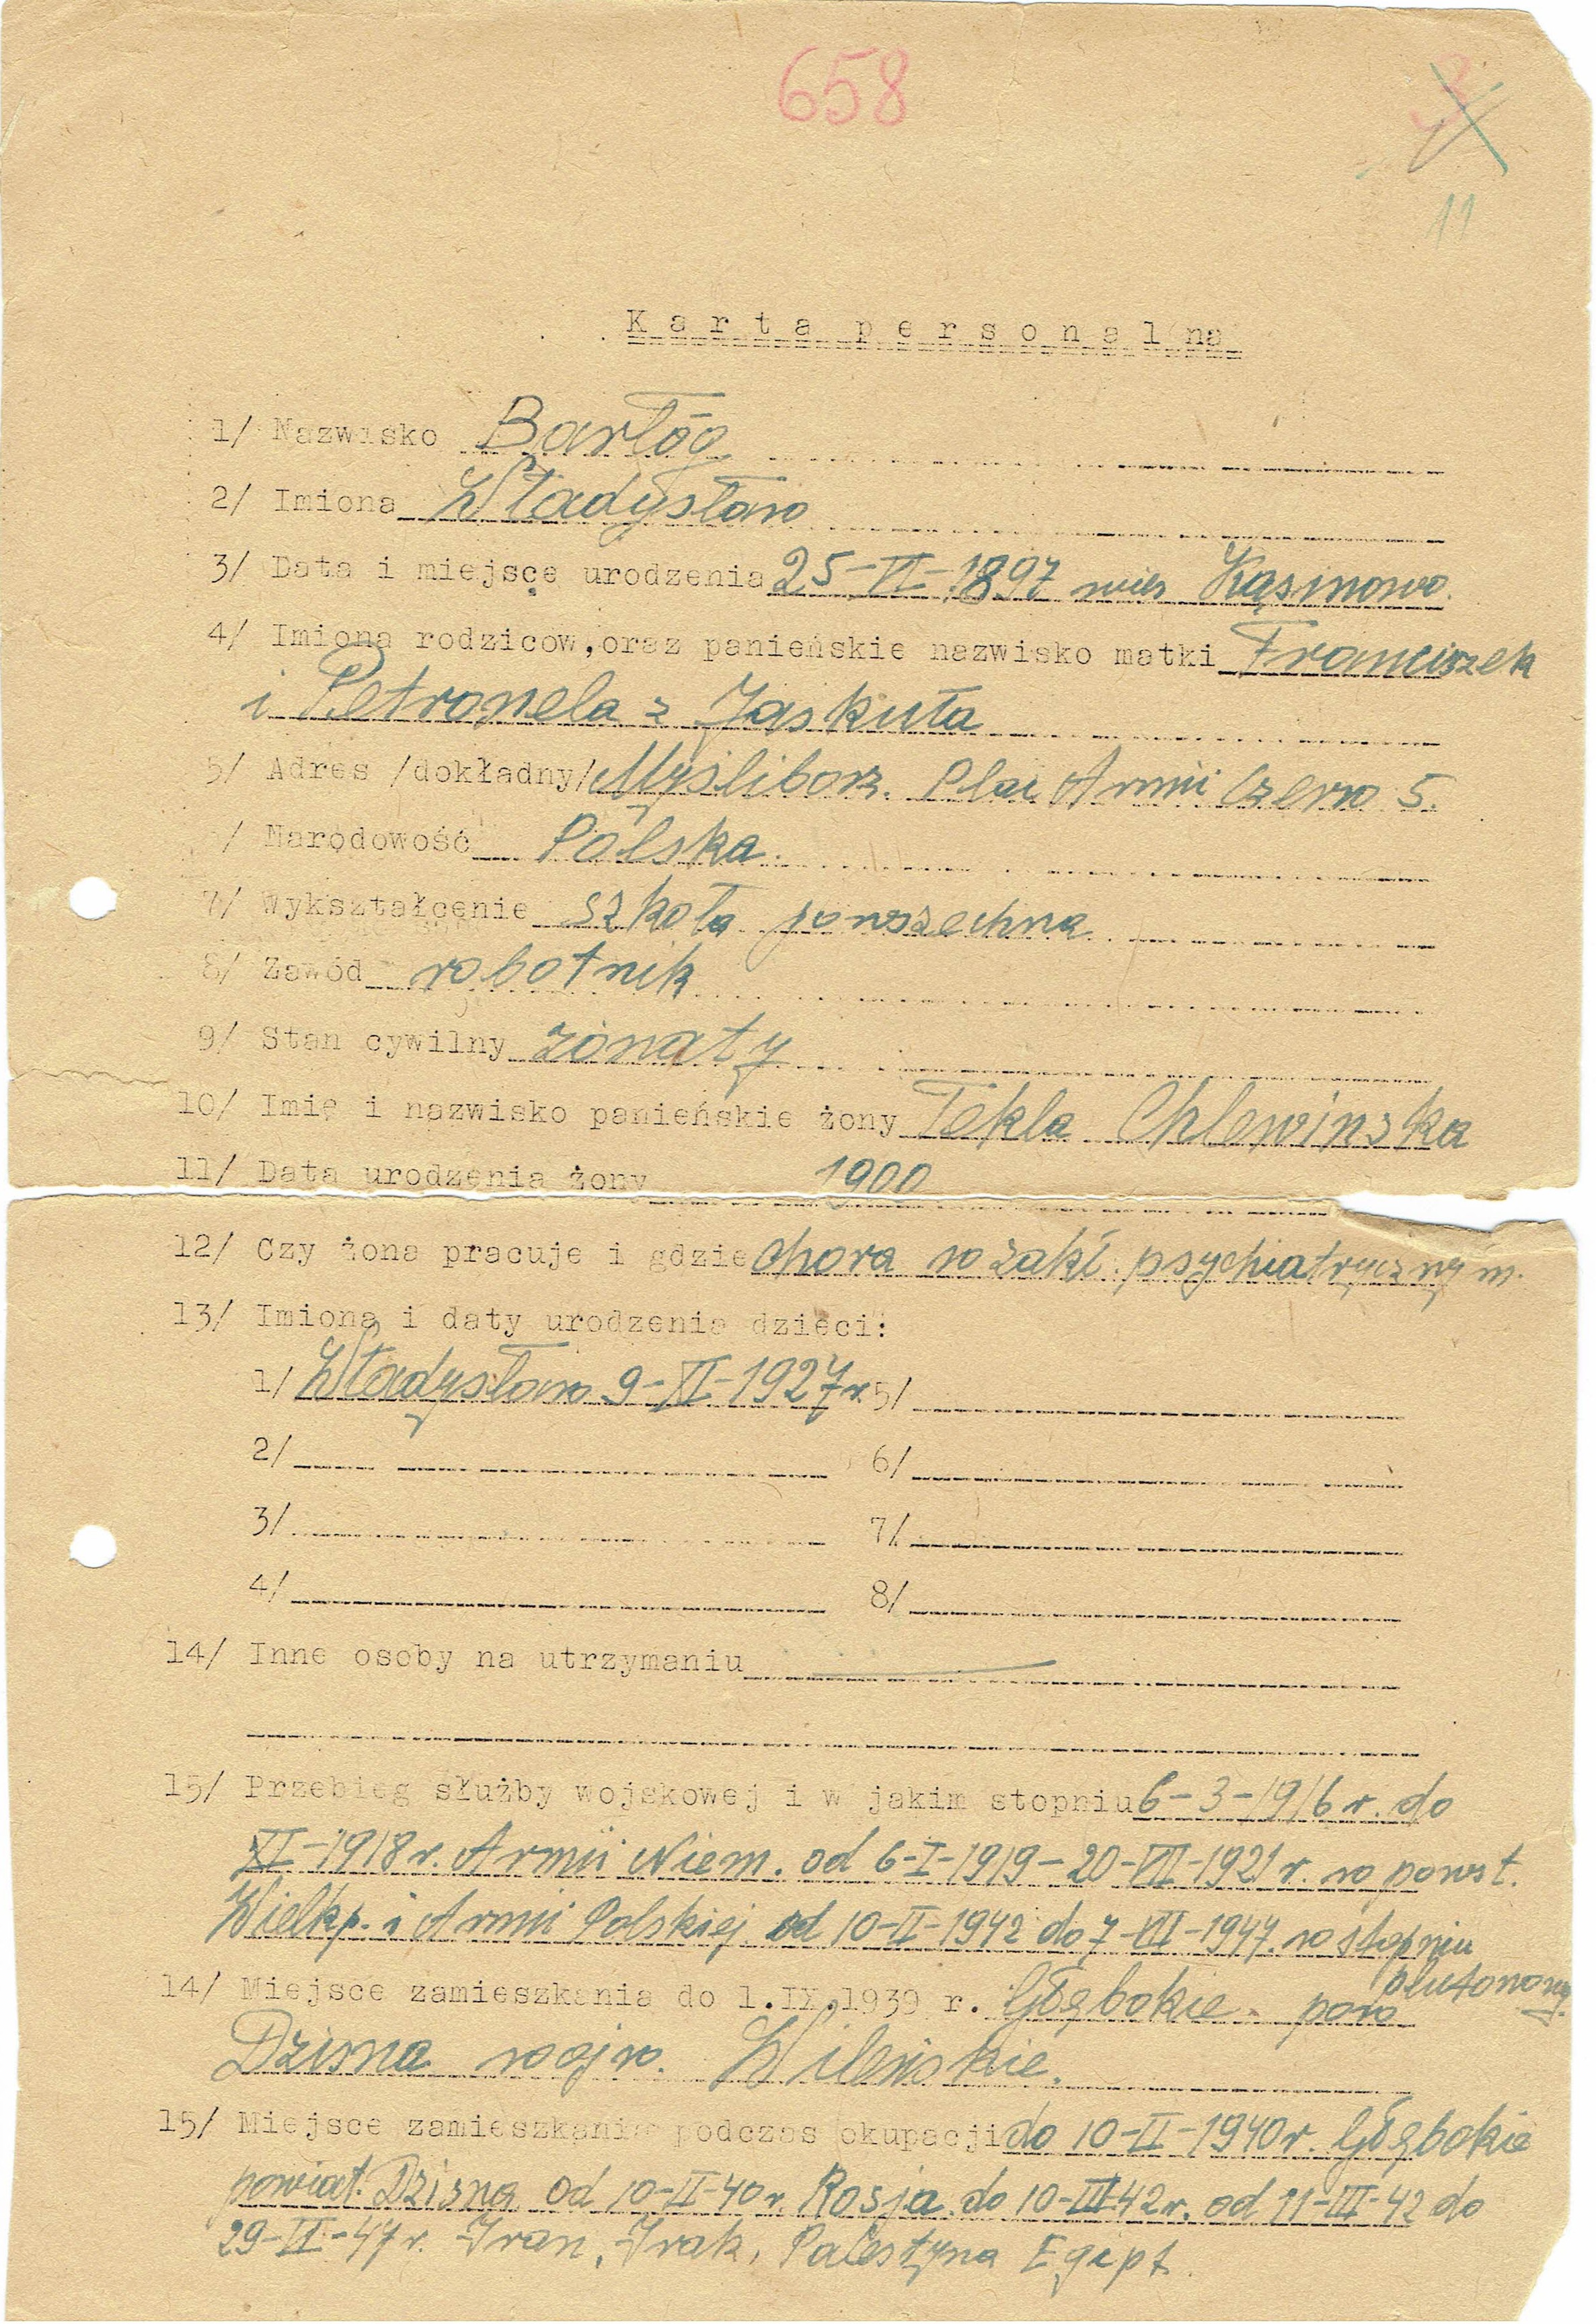 658
11
Karta personalna
1/ Nazwisko Barłóg
2/ Imiona Władysław
3/ Data i miejsce urodzenia 25-VI-1897 wieś Kąsinowo.
4/ Imiona rodzicow, oraz panieńskie nazwisko matki Franciszek
i Petronela z Jaskuła
5/ Adres /dokładny/ Myślibórz. Plac Armii Czerw 5.
/ Narodowość Polska.
7/ Wykształcenie szkoła powszechna
8/ Zawód robotnik
9/ Stan cywilny żonaty
10/ Imię i nazwisko panieńskie żony Tekla Chlewinska
11/ Data urodzenia żony 1900
12/ Czy żona pracuje i gdzie chora w zakł. psychiatrycznym.
13/ Imiona i daty urodzenia dzieci:
1/ Władysław 9-XI-1927 r. 5/
2/ 6/
3/ 7/
4/ 8/
14/ Inne osoby na utrzymaniu
15/ Przebieg służby wojskowej i w jakim stopniu 6-3-1916 r. do
XI-1918 r. Armii Niem. od 6-I-1919-20-VII-1921 r. w powst.
Wielkp. i Armii Polskiej od 10-II-1942 do 7-VII-1947. w stopniu
plutonowy.
14/ Miejsce zamieszkania do 1.IX.1939 r. Głębokie. pow
Dzisna wojw. Wileńskie.
15/ Miejsce zamieszkania podczas okupacji do 10-II-1940 r. Głębokie
powiat. Dzisna od 10-II-40 r. Rosja do 10-III-42 r. od 11-III-42 do
29-II-47 r. Iran, Irak, Palestyna Egipt.